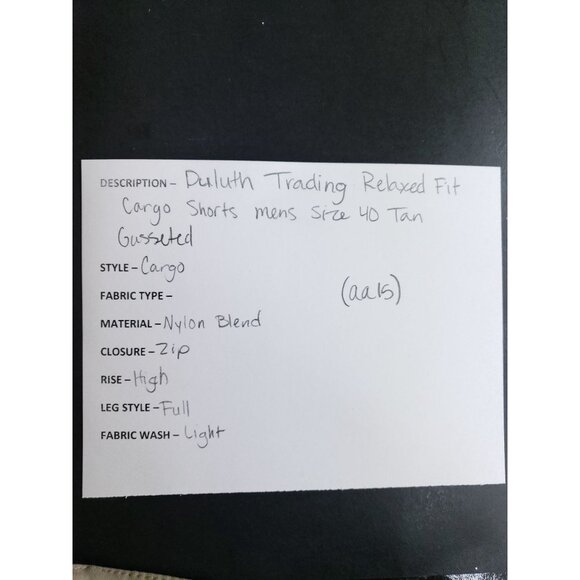 DESCRIPTION - Duluth Trading Relaxed Fit
Cargo Shorts mens Size 40 Tan
Gusseted
STYLE - Cargo
FABRIC TYPE -
(aa15)
MATERIAL - Nylon Blend
CLOSURE - Zip
RISE - High
LEG STYLE - Full
FABRIC WASH - Light